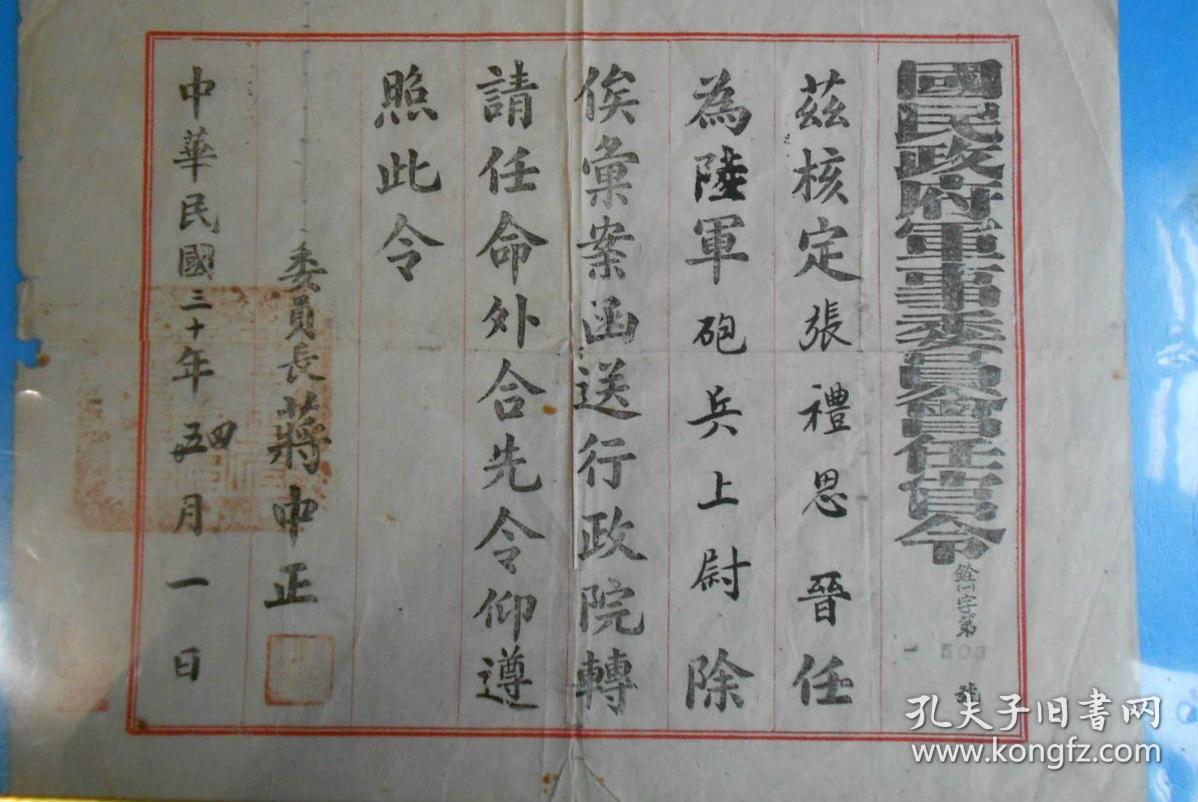 國民政府軍事委員會任官令
銓㈠字第
號
茲核定張禮恩晉任
為陸軍砲兵上尉除
俟彙案函送行政院轉
請任命外合先令仰遵
照此令
委員長蔣中正
中華民國三十年五四月一日
孔夫子旧書网
www.kongfz.com